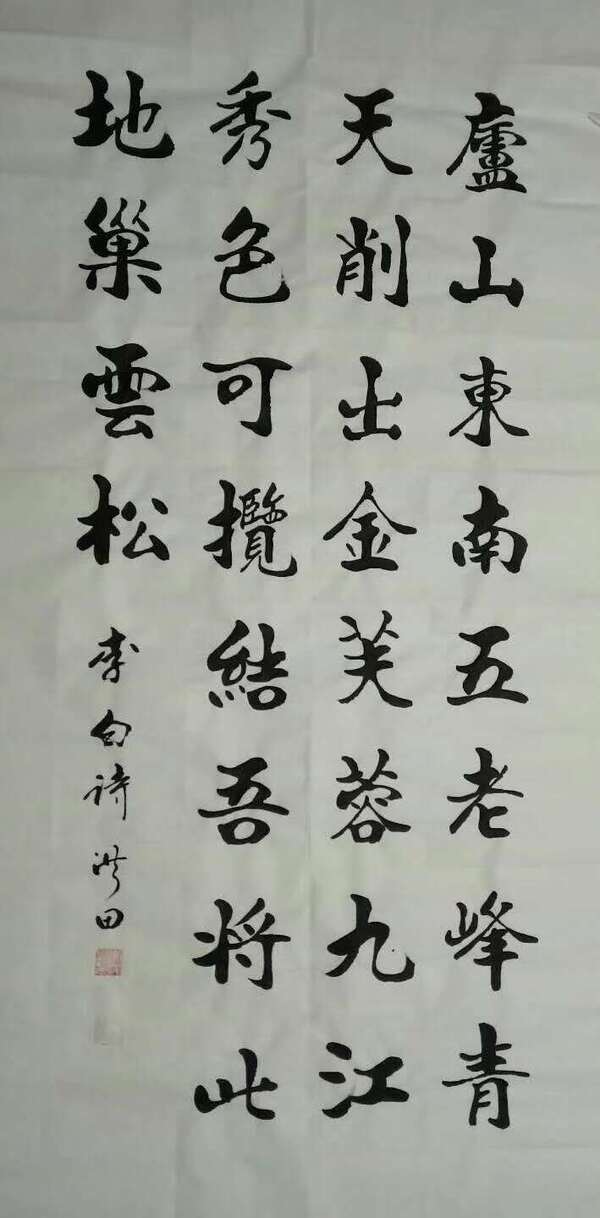 廬山東南五老峰青
天削出金芙蓉九江
秀色可攬結吾將此
地巢雲松
李白詩 田